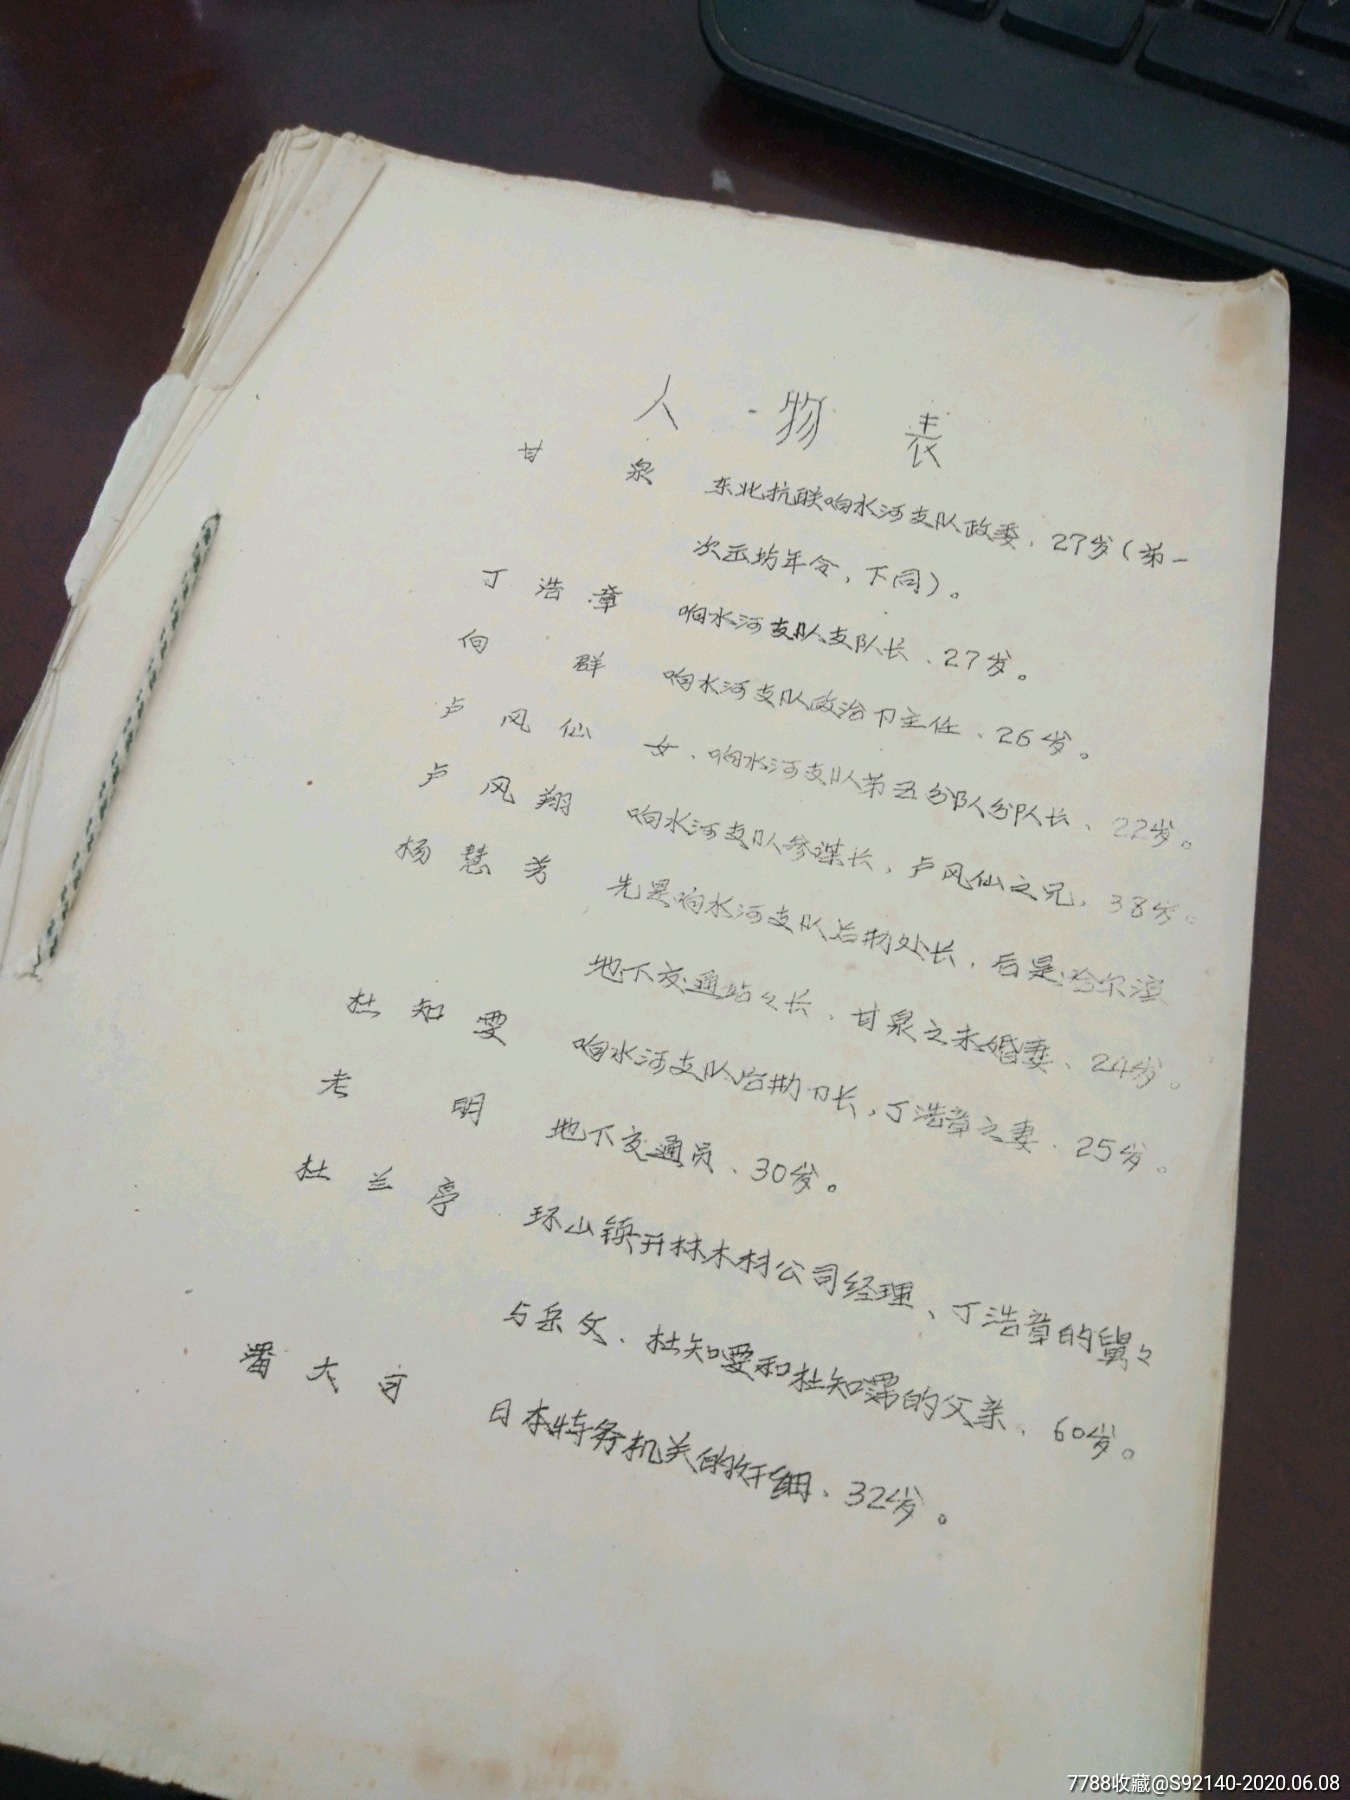 人物表
甘泉 东北抗联响水河支队政委、27岁(第一
次出场年令,下同)。
丁浩章 响水河支队支队长、27岁。
向群 响水河支队政治卩主任、26岁。
卢风仙 女、响水河支队第五分队分队长、22岁。
卢风翔 响水河支队参谋长,卢风仙之兄,38岁。
杨慧芳 先是响水河支队后勤处长,后是哈尔滨
地下交通站々长,甘泉之未婚妻、24岁。
杜知雯 响水河支队后勤卩长,丁浩章之妻、25岁。
老明 地下交通员、30岁。
杜兰亭 环山镇开林木材公司经理、丁浩章的舅々
与岳父、杜知雯和杜知霈的父亲、60岁。
大 日本特务机关的奸细、32岁。
7788收藏@S92140-2020.06.08